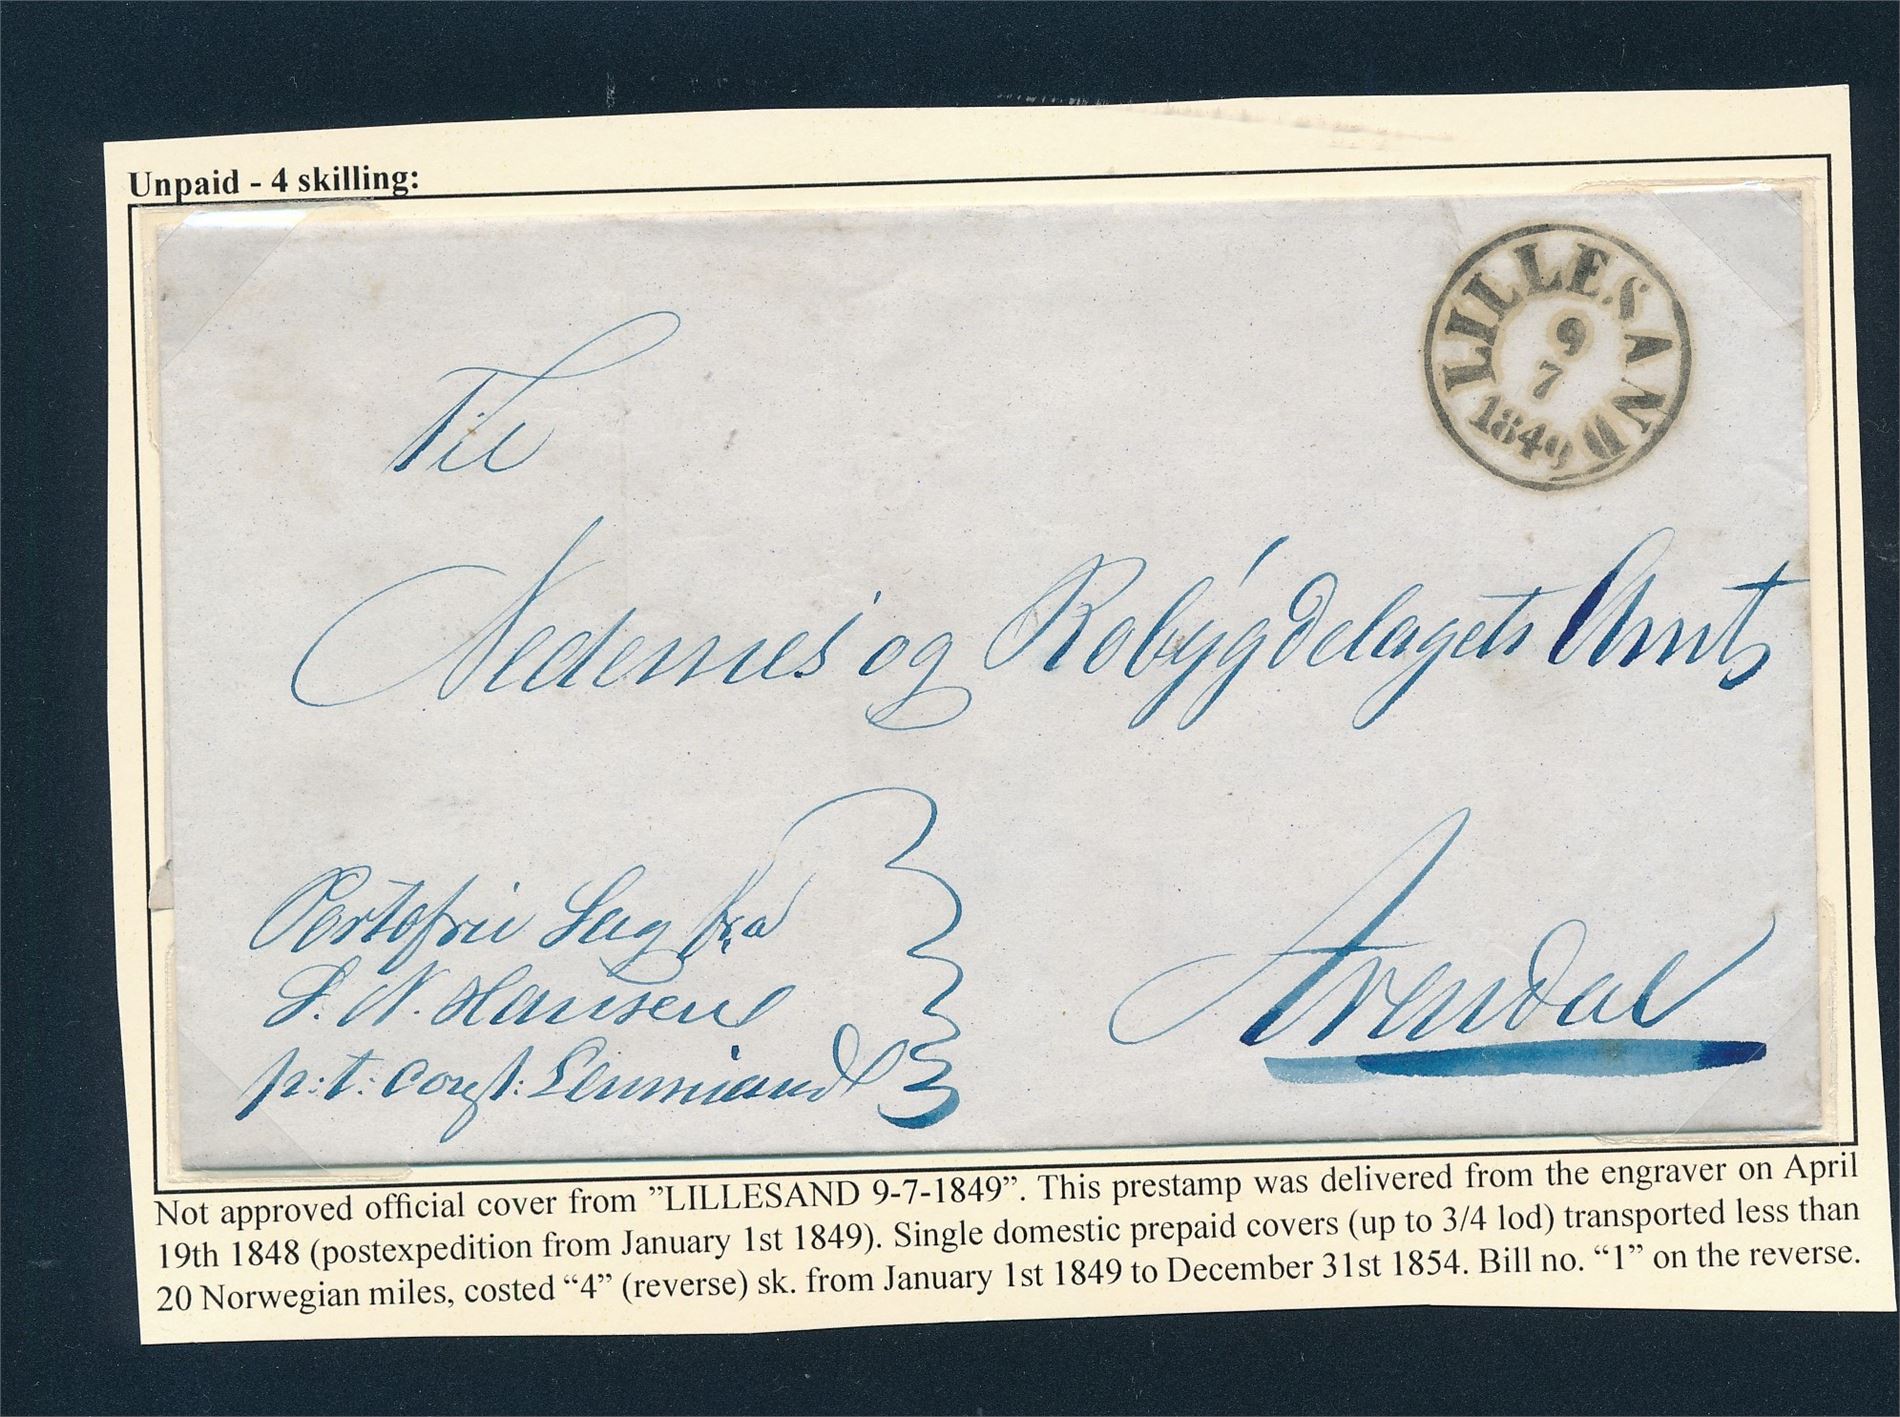 Unpaid - 4 skilling:
LILLESAND
9
7
1849
Til
Nedenes og Robÿgdelagets Amt
Arendal
Portofrie Sag fra
S. N. Hansen
p:t: const: Lensmand
Not approved official cover from ”LILLESAND 9-7-1849”. This prestamp was delivered from the engraver on April
19th 1848 (postexpedition from January 1st 1849). Single domestic prepaid covers (up to 3/4 lod) transported less than
20 Norwegian miles, costed “4” (reverse) sk. from January 1st 1849 to December 31st 1854. Bill no. “1” on the reverse.